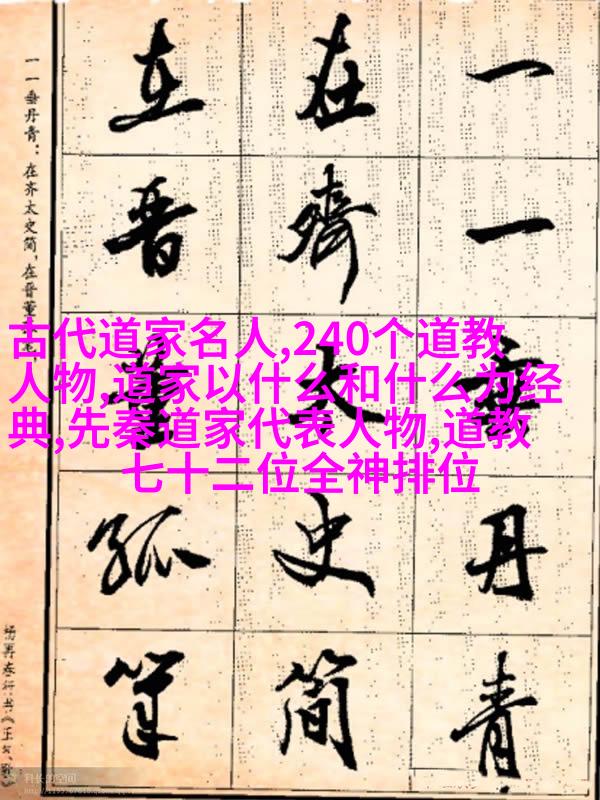 一一垂丹青
在齊太史简
在晋董狐筆
一一垂丹青：在齐太史简，在晋董
杨再春行书《正气歌》
古代道家名人,240个道教
人物,道家以什么和什么为经
典,先秦道家代表人物,道教
七十二位全神排位
科长的空间